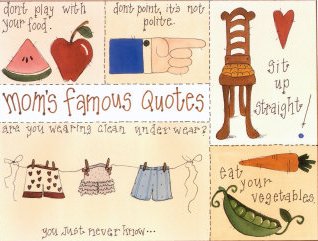 dont play with
your food.
dont point, it's not
polite.
Mom's Famous Quotes
sit
up
straight!
are you wearing clean underwear?
you just never know...
eat
your
vegetables.